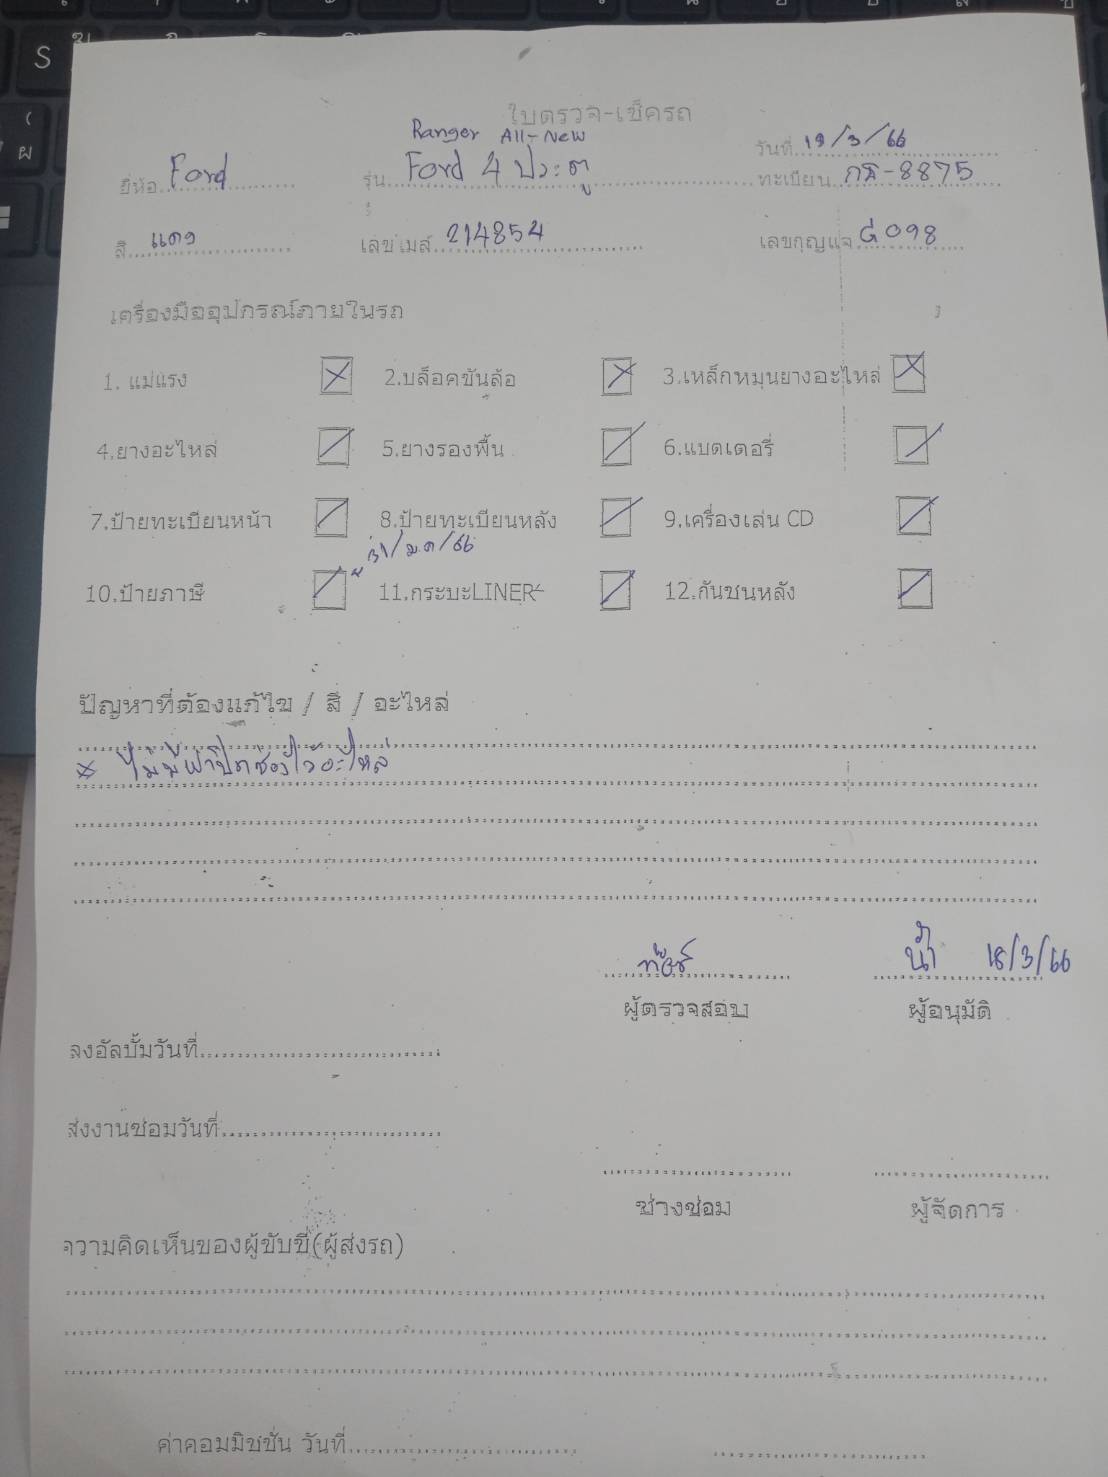 ใบตรวจ-เช็ครถ
Ranger All-New
ยี่ห้อ Ford รุ่น Ford 4 ประตู วันที่ 18/3/66
ทะเบียน 8875
สี แดง เลขไมล์ 214854 เลขกุญแจ G098
เครื่องมืออุปกรณ์ภายในรถ
1. แม่แรง 2.บล็อคขันล้อ 3.เหล็กหมุนยางอะไหล่
4.ยางอะไหล่ 5.ยางรองพื้น 6.แบตเตอรี่
7.ป้ายทะเบียนหน้า 8.ป้ายทะเบียนหลัง 9.เครื่องเล่น CD
31/ม.ค/66
10.ป้ายภาษี 11.กระบะLINER 12.กันชนหลัง
ปัญหาที่ต้องแก้ไข / สี / อะไหล่
ไม่มีฝาปิดช่องไว้อะไหล่
น้ำ 18/3/66
ผู้ตรวจสอบ ผู้อนุมัติ
ลงอัลบั้มวันที่
ส่งงานซ่อมวันที่
ช่างซ่อม ผู้จัดการ
ความคิดเห็นของผู้ขับขี่(ผู้ส่งรถ)
ค่าคอมมิชชั่น วันที่